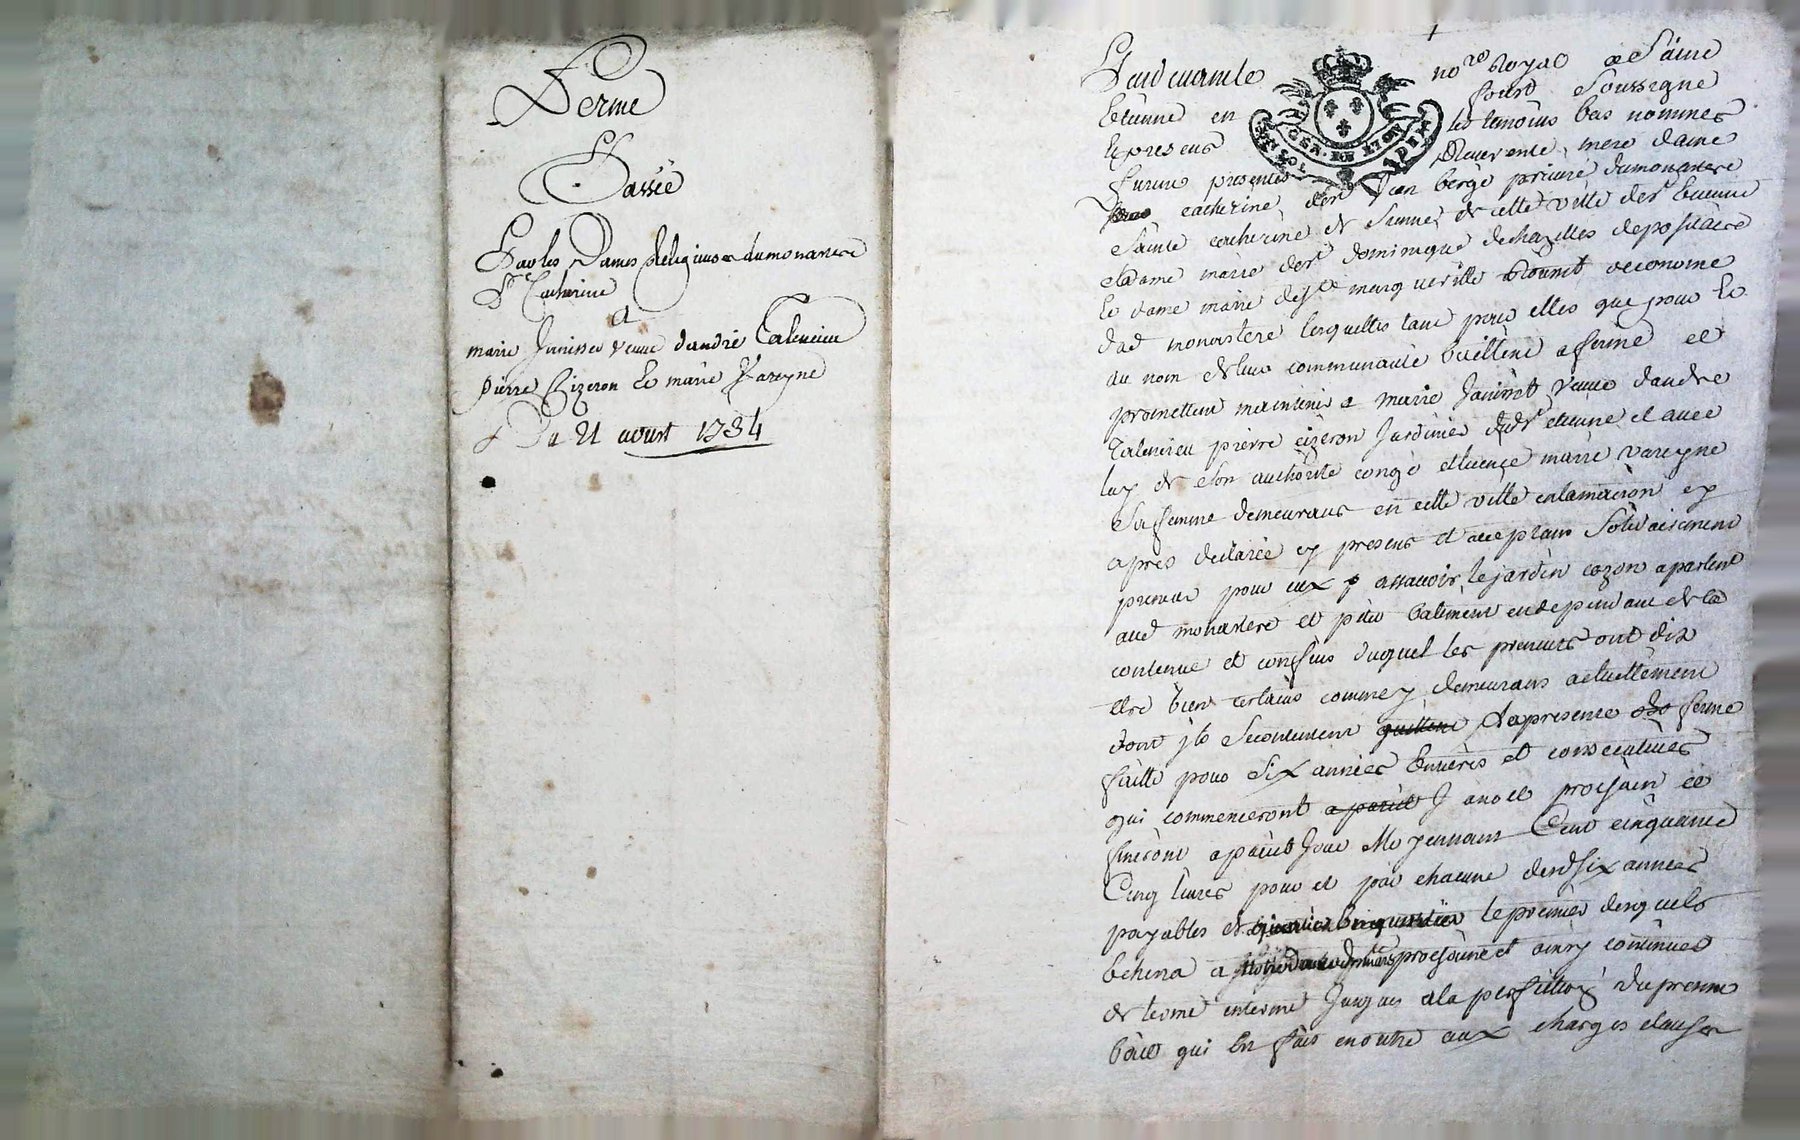 Ferme
Passée
Par les Dames Religieuses du monastere
Ste Catherine
A
marie Janisset veuve dandré Talencieu
pierre Cizeron Et marie Vareyne
Du 21 aoust 1734
Pardevant le no.re Royal de Saint
Etienne en forest Soussigné
Et presens les temoins bas nommés
furent presentes Reverente mere dame
catherine de prieuré du monastere
Sainte catherine de Sienne de cette ville de St Etienne
et dame marie de St dominique dechazelles depositaire
Et dame marie de econome
dud monastere lesquelles tant pour elles que pour Et
au nom de leur communauté baillent a ferme et
promettent maintenir a marie Janisset veuve dandré
Talencieu pierre cizeron Jardinier dud St etienne et avec
luy de Son authorité congé et licence marie vareyne
Sa femme demeurans en cette ville calamacion cy
apres declarée cy presens et acceptans Solidairement
preneur pour eux assavoir le jardin cozon apartent
aud monastere et petit batiment en dependant de la
contenue et confins duquel les preneurs ont dit
etre bien certains comme y demeurans actuellement
dont ils Se contentent la presente ferme
faitte pour Six années Entieres et consecutives
qui commenceront a noel prochain et
finiront a pareil Jour Moyennant Cent cinquante
Cinq livres pour et par chacune desd Six années
payables le premier desquels
Echerra a prochaine et ainsy continuer
de terme en terme Jusques a la perfection du present
bail qui Est fait en outre aux charges clauses